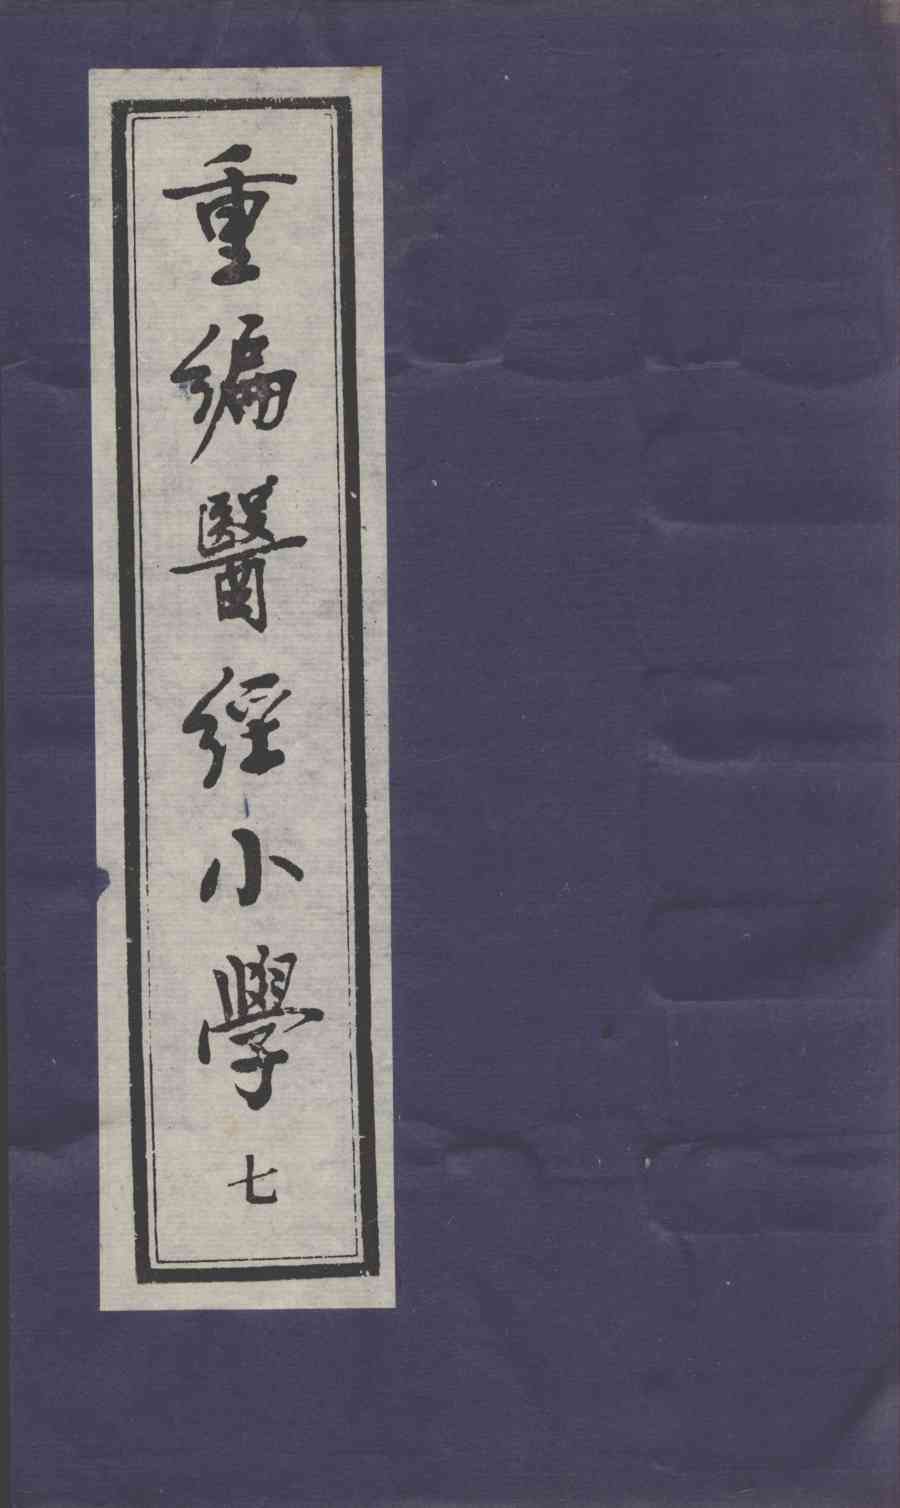 重編醫經小學七